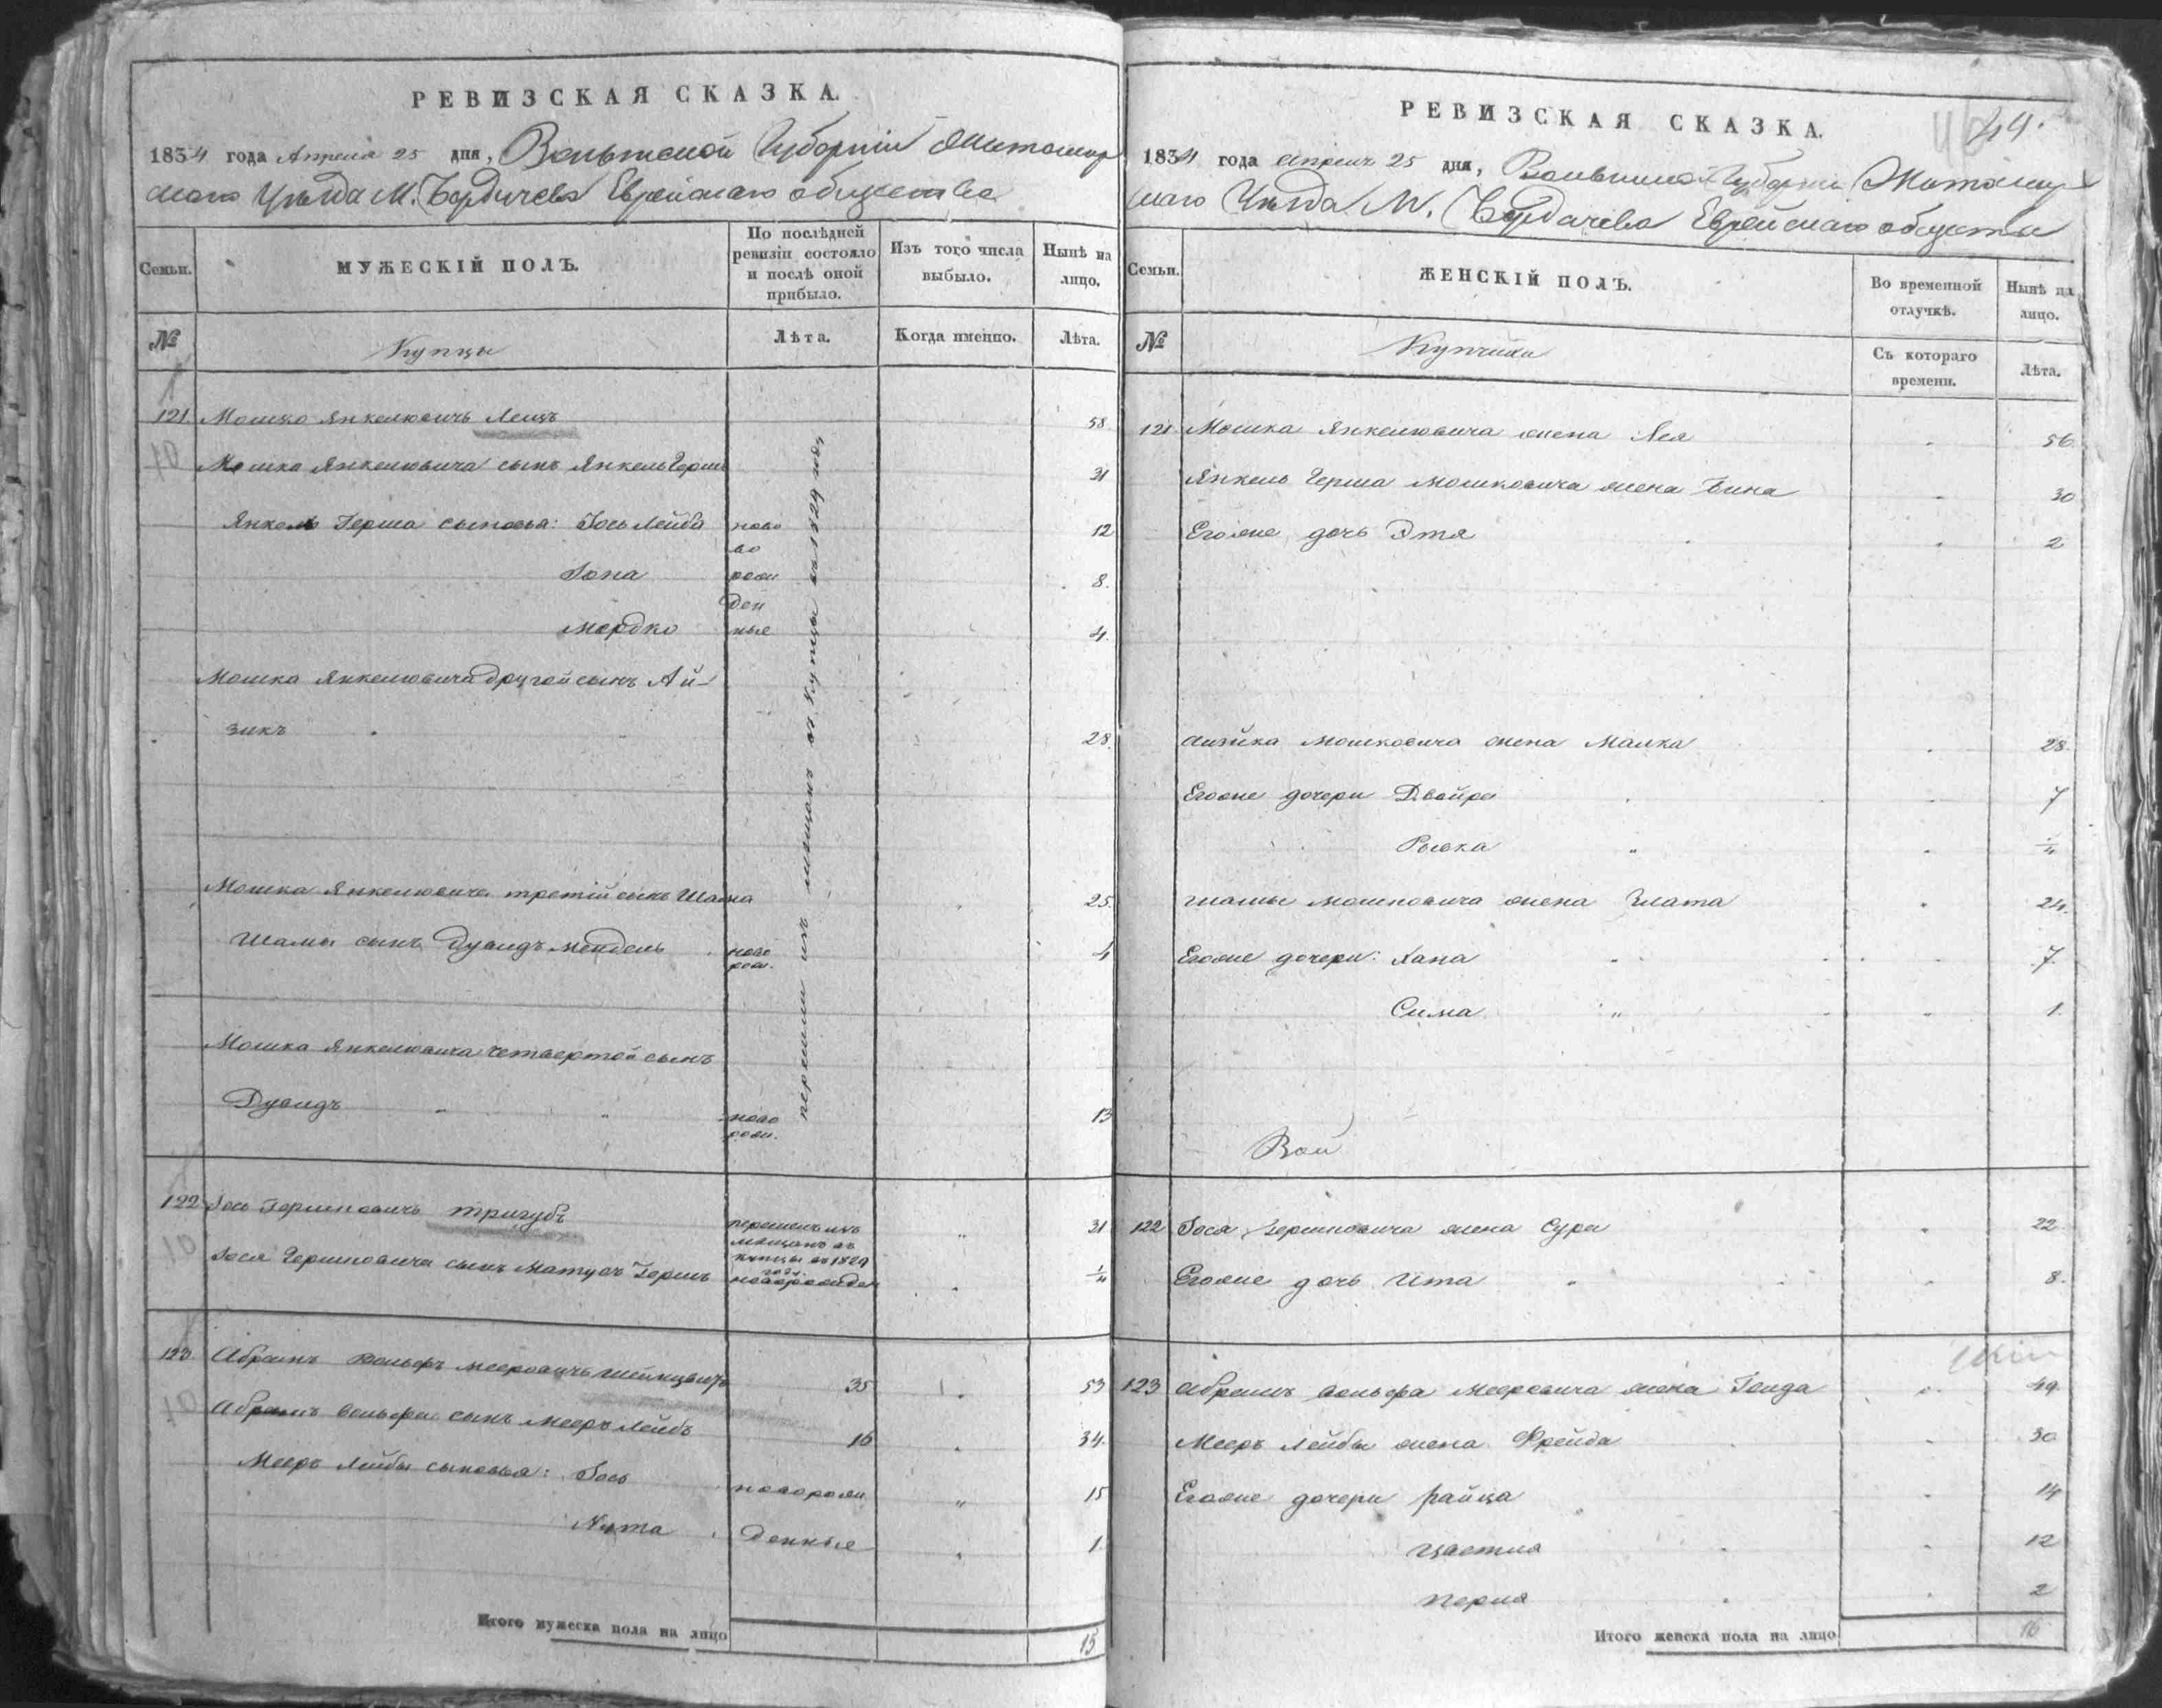 РЕВИЗСКАЯ СКАЗКА.
1834 года Апреля 25 дня, Волынской Губерніи Житомир
скаго Уѣзда М. Бердичева Еврейскаго общества
Семьи.
МУЖЕСКІЙ ПОЛЪ.
По послѣдней ревизіи состояло и послѣ оной прибыло.
Изъ того числа выбыло.
Нынѣ на лицо.
№
Купцы
Лѣта.
Когда именно.
Лѣта.
121. Мошко Янкелювичь Ленцъ 58
Мошка Янкелювича сынъ Янкель Герш 31
Янкель Герша сыновья: Іось Лейба ново 12
во
Іона рож 8.
ден
Мордко ные 4.
Мошка Янкелювича другой сынъ Ай-
зикъ 28.
Мошка Янкелювича третій сынъ Шама 25.
Шамы сынъ Дувидъ Мендель ново 4
рож.
Мошка Янкелювича четвертой сынъ
Дувидъ " " ново 13
рож.
перешли изъ мещанъ въ Купцы въ 1829 году
122 Іось Гершковичь Тригубъ перешелъ изъ " 31
мещанъ въ
купцы въ 1829
году.
Іося Гершковича сынъ Матусъ Гершъ новорожден 1/4
123. Абрамъ Вольфъ Мееровичь 35 53
Абрамъ Вольфа сынъ Мееръ Лейбъ 16 34.
Мееръ Лейбы сыновья: Іось новорож " 15
Нута денные 1
Итого мужеска пола на лицо 15
РЕВИЗСКАЯ СКАЗКА.
44.
1834 года Апреля 25 дня, Волынской Губерніи Житомир
скаго Уѣзда М. Бердичева Еврейскаго общества
Семьи.
ЖЕНСКІЙ ПОЛЪ.
Во временной отлучкѣ.
Нынѣ на лицо.
№
Купчихи
Съ котораго времени.
Лѣта.
121 Мошка Янкелювича жена Лея 56
Янкель Герша Мошковича жена Бина 30
Егоже дочь Этя 2
Айзика Мошковича жена Малка 28.
Егоже дочери Двойра 7
Рывка " 1/4
Шамы Мошковича жена Злата 24.
Егоже дочери: Хана 7.
Сима " 1.
122 Іося Гершковича жена Сура 22
Егоже дочь Ита " 8.
123 Абрамъ Вольфа Мееровича жена Генда 49.
Мееръ Лейбы жена Фрейда 30
Егоже дочери Райца 14
Цаетля 12
Перля 2
Итого женска пола на лицо 16